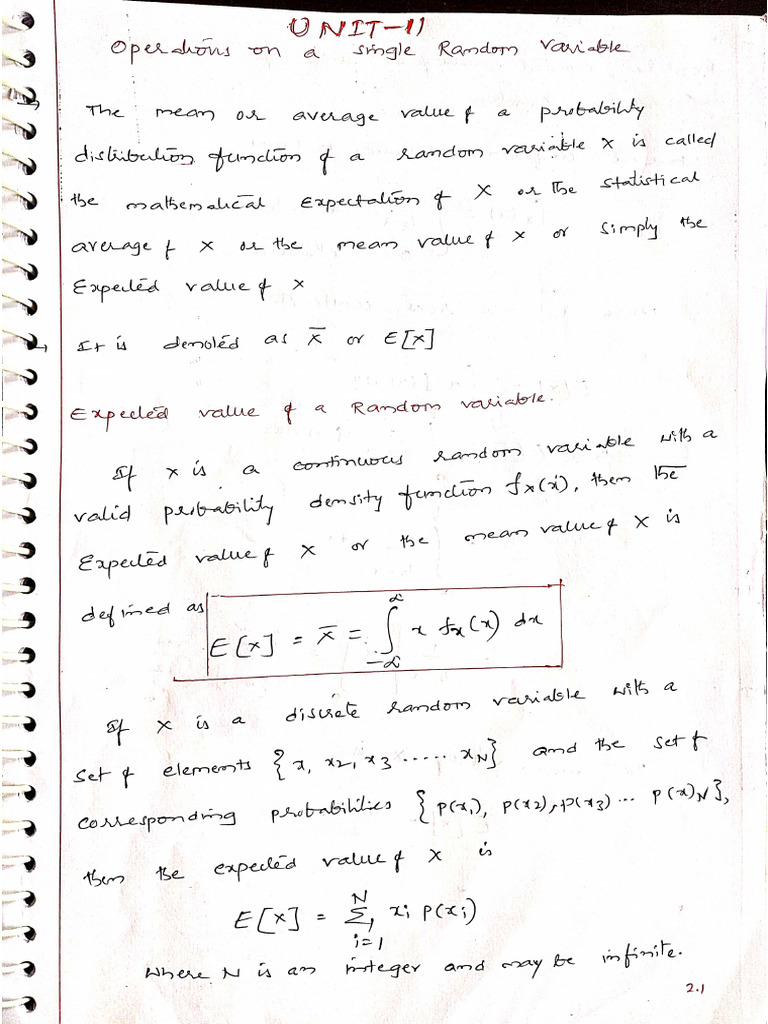 UNIT-II
Operations on a single Random Variable
The mean or average value of a probability
distribution function of a random variable X is called
the mathematical Expectation of X or the statistical
average of X or the mean value of X or simply the
Expected value of X
It is denoted as X̅ or E[X]
Expected value of a Random variable.
If X is a continuous random variable with a
valid probability density function fₓ(x), then the
Expected value of X or the mean value of X is
defined as E[X] = X̅ = ∫_{-∞}^{∞} x fₓ(x) dx
If X is a discrete random variable with a
set of elements {x, x₂, x₃ ..... x_N} and the set of
corresponding probabilities {P(x₁), P(x₂), P(x₃) ... P(x)_N},
then the expected value of X is
E[X] = Σ_{i=1}^{N} xᵢ P(xᵢ)
Where N is an integer and may be infinite.
2.1